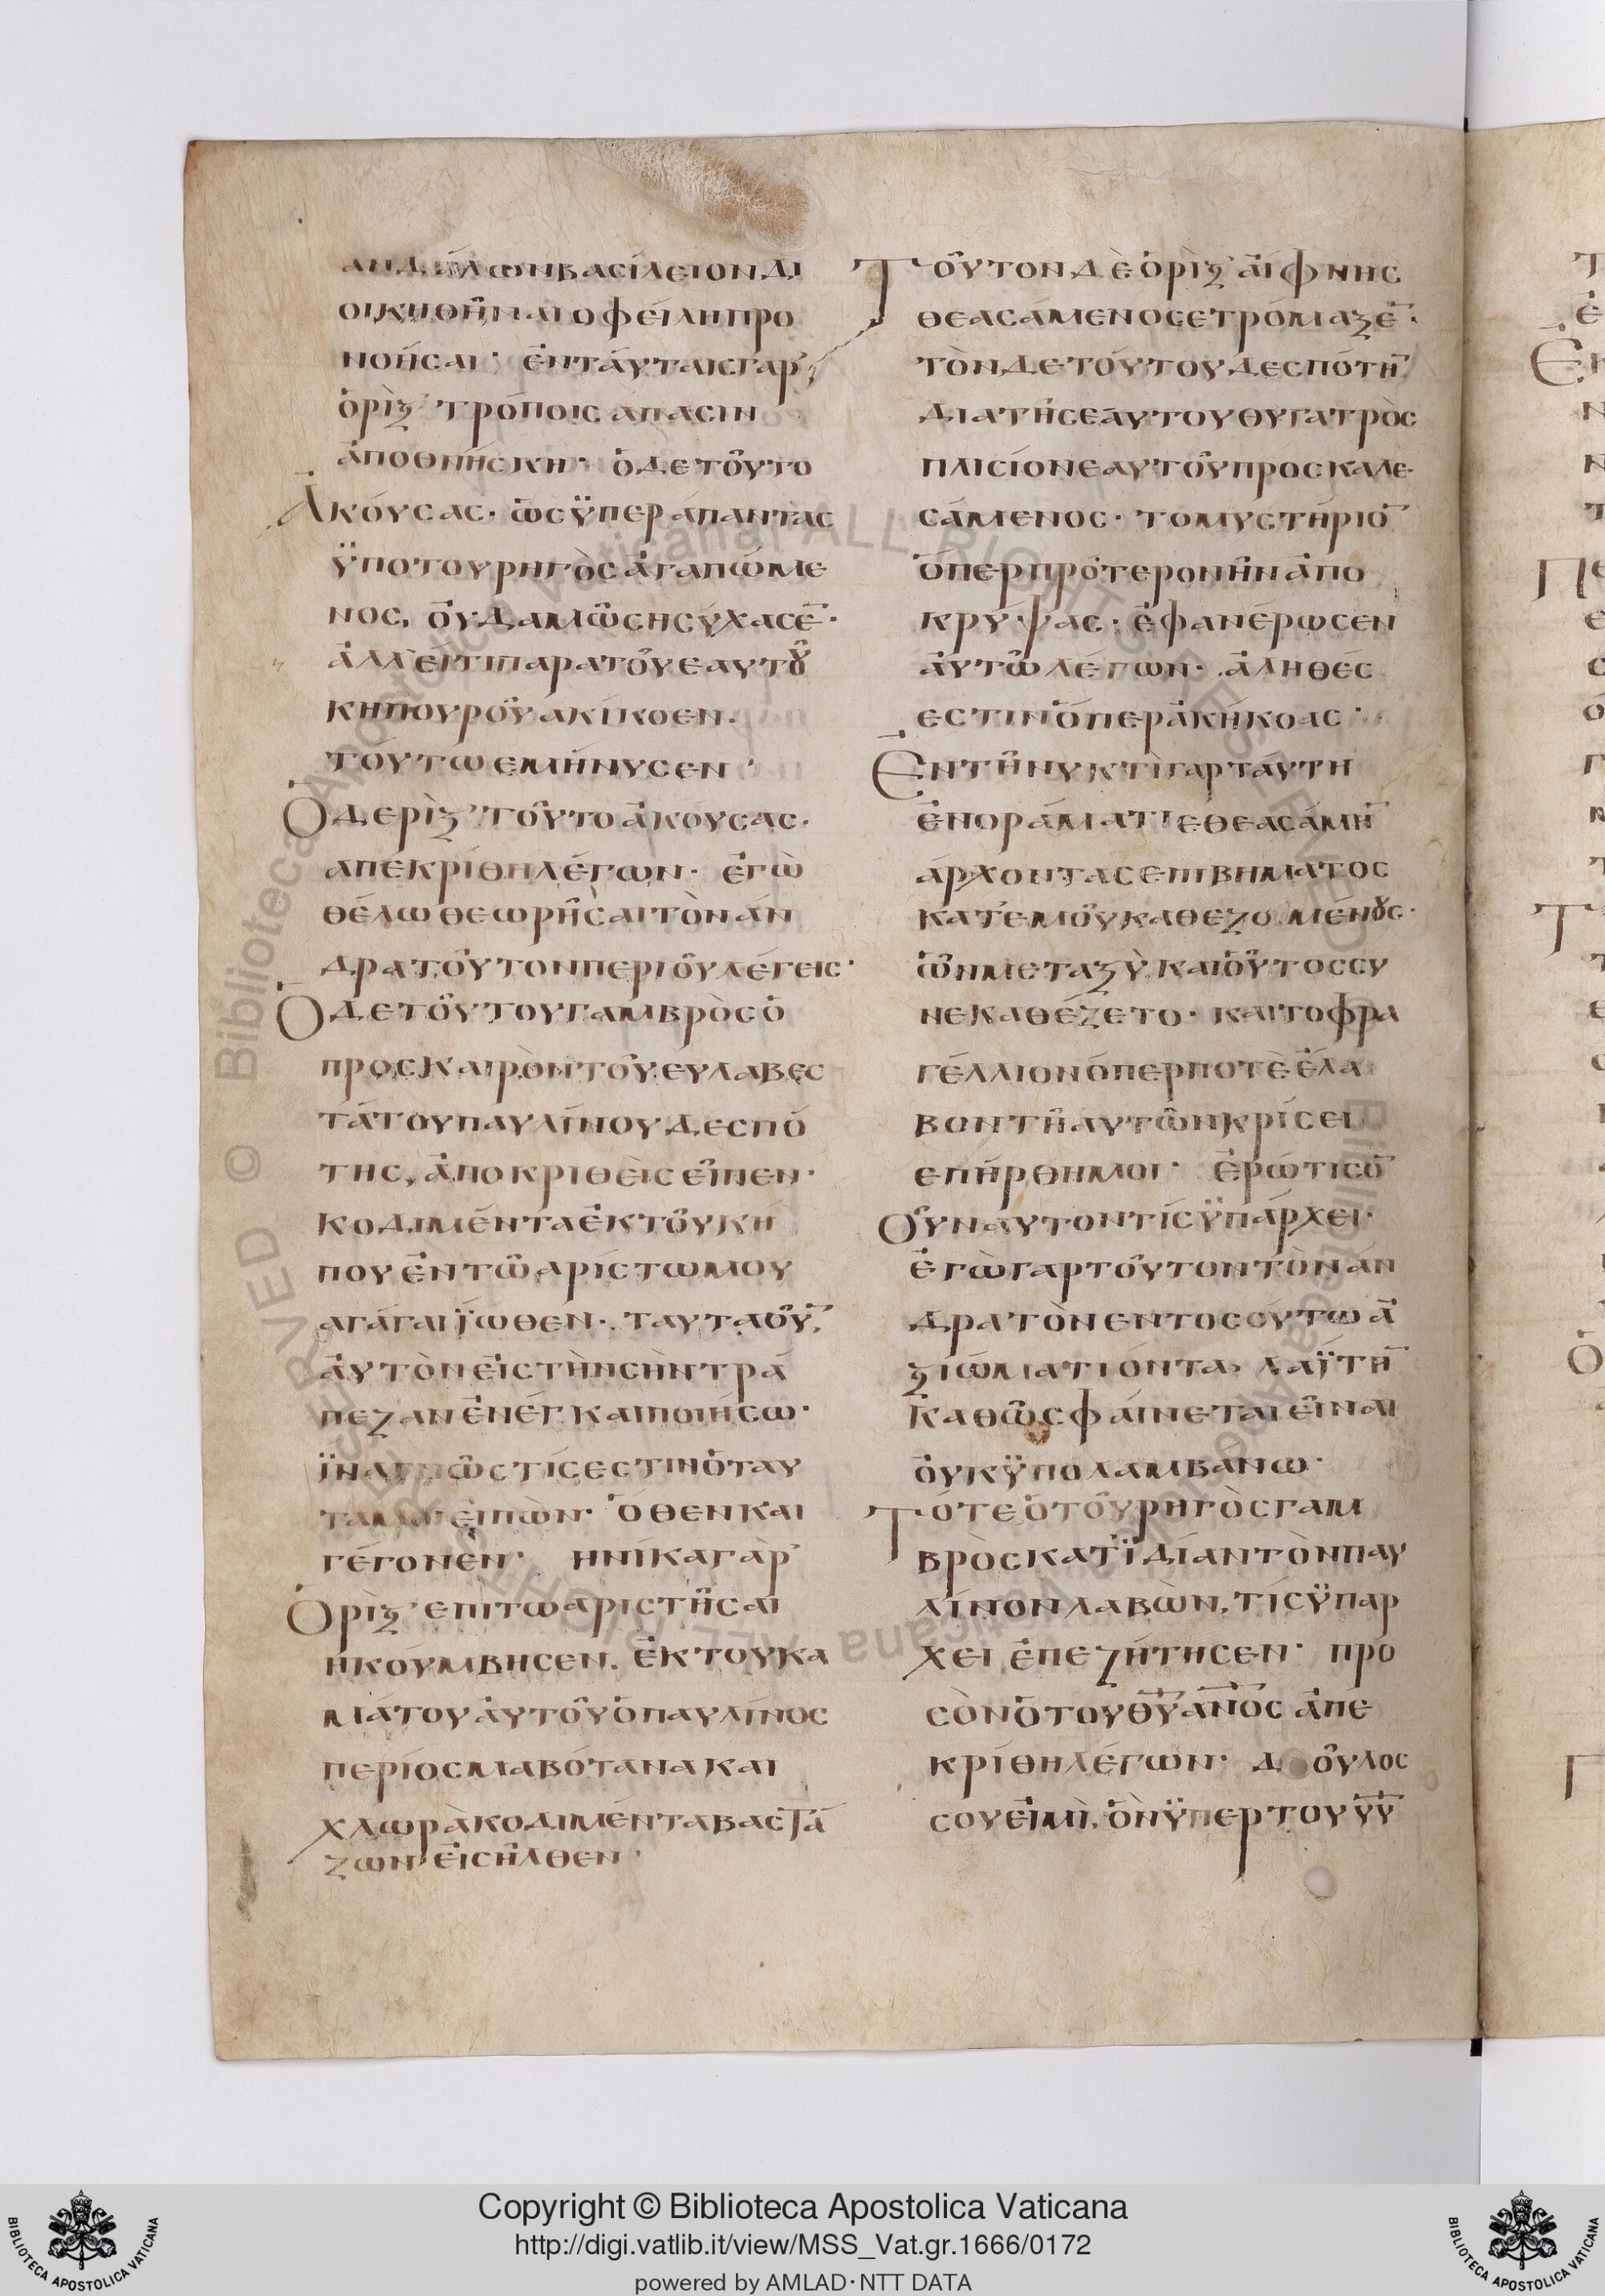 ΑΝΔΆΛΩΝΒΑΣΊΛΕΙΟΝΔΙ
ΟΙΚΗΘΗ͂ΝΑΙΟΦΕΊΛΗΠΡΟ
ΝΟΗ͂ΣΑΙ· ἘΝΤΑΎΤΑΙΣΓΑΡ
ὉΡῚΞ ΤΡΌΠΟΙΣ ἍΠΑΣΙΝ
ἈΠΟΘΝΉΣΚΗ· ὉΔΕΤΟΥ͂ΤΟ
ἈΚΟΎΣΑΣ· ὩΣΫΠΕΡ ἍΠΑΝΤΑΣ
ΫΠΟΤΟΥΡΗΓῸΣἈΓΑΠΏΜΕ
ΝΟΣ, ΟΥ̓ΔΑΜΩ͂ΣΗΣΎΧΑΣΕ̅·
ἈΛΛ'ΕΊΤΙΠΑΡΑΤΟΥ͂ΕΑΥΤΟΥ͂
ΚΗΠΟΥΡΟΥ͂ΑΚΊΚΟΕΝ·
ΤΟΎΤΩΕΜΉΝΥΣΕΝ·
ὉΔΕΡῚΞ'ΤΟΥ͂ΤΟἈΚΟΎΣΑΣ·
ΑΠΕΚΡΊΘΗΛΈΓΩΝ· ἘΓῺ
ΘΈΛΩΘΕΩΡΗ͂ΣΑΙΤῸΝΆΝ
ΔΡΑΤΟΥ͂ΤΟΝΠΕΡΙΟΥ͂ΛΈΓΕΙΣ·
ὉΔΕΤΟΎΤΟΥΓΑΜΒΡῸΣὉ
ΠΡΟΣΚΑΙΡῸΝΤΟΥ͂ΕΥΛΑΒΕΣ
ΤΆΤΟΥΠΑΥΛΊΝΟΥΔΕΣΠΌ
ΤΗΣ, ἈΠΟΚΡΙΘΕῚΣΕἾΠΕΝ·
ΚΟΔΙΜΈΝΤΑἘΚΤΟΥ͂ΚΗ
ΠΟΥἘΝΤΩ͂ΑΡΊΣΤΩΜΟΥ
ΑΓΆΓΑΙΪΩΘΕΝ· ΤΑΥΤΑΟΥ̓͂̅,
ἈΥΤῸΝΕἸΣΤῊΝΣῊΝΤΡΆ
ΠΕΖΑΝἘΝΈΓΚΑΙΠΟΙΉΣΩ·
ΪΝΑΓΝΩ͂ΣΤΊΣΕΣΤΙΝὉΤΑΥ
ΤΑΜΟΙΕἸΠῺΝ· ὍΘΕΝΚΑΙ
ΓΈΓΟΝΕΝ· ΗΝΊΚΑΓᾺΡ
ὉΡῚΞ'ΕΠΙΤΩΑΡΙΣΤΗ͂ΣΑΙ
ΗΚΟΎΜΒΗΣΕΝ. ἘΚΤΟΥΚΑ
ΜΆΤΟΥἈΥΤΟΥ͂ὉΠΑΥΛΊΝΟΣ
ΠΕΡΊΟΣΜΑΒΌΤΑΝΑΚΑΙ
ΧΛΩΡᾺΚΟΔΙΜΈΝΤΑΒΑΣΤΆ
ΖΩΝ,ΕἸΣΗ͂ΛΘΕΝ·
ΤΟΥ͂ΤΟΝΔῈὉΡῚΞ'ἈΊΦΝΗΣ
ΘΕΑΣΆΜΕΝΟΣΕΤΡΌΜΑΞΕ̅·
ΤῸΝΔΕΤΟΎΤΟΥΔΕΣΠΌΤΗ̅
ΔΙΑΤΗ͂ΣΕΑΥΤΟΥΘΥΓΑΤΡῸΣ
ΠΛΙΣΊΟΝΕΑΥΤΟΥ͂ΠΡΟΣΚΑΛΕ
ΣΆΜΕΝΟΣ· ΤΟΜΥΣΤΉΡΙΟ̅
ὍΠΕΡΠΡΌΤΕΡΟΝΗ͂ΝἈΠΟ
ΚΡΎΨΑΣ· ἘΦΑΝΈΡΩΣΕΝ
ἈΥΤΩ͂ΛΈΓΩΝ· ἈΛΗΘΈΣ
ΕΣΤΙΝὍΠΕΡἈΚΉΚΟΑΣ·
ἘΝΤΗ͂ΝΥΚΤῚΓΑΡΤΑΎΤΗ
ἘΝΟΡΆΜΑΤΙΕΘΕΑΣΆΜΗ̅
ΆΡΧΟΝΤΑΣΕΠΙΒΗΜΑΤΟΣ
ΚΑΤ'ΕΜΟΥ͂ΚΑΘΕΖΟΜΈΝΟΥΣ·
ὯΝΜΕΤΑΞῪΚΑΙΟὟΤΟΣΣΥ
ΝΕΚΑΘΈΖΕΤΟ· ΚΑΙΤΟΦΡΑ
ΓΈΛΛΙΟΝΌΠΕΡΠΟΤῈἘΛΑ
ΒΟΝΤΗ͂ΑΥΤΩ͂ΝΚΡΊΣΕΙ
ΕΠΉΡΘΗΜΟΙ· ἘΡΏΤΙΣΟ̅
ΟΥ͂ΝΑΥΤΟΝΤΊΣΫΠΆΡΧΕΙ·
ἘΓῺΓΑΡΤΟΥ͂ΤΟΝΤῸΝΆΝ
ΔΡΑΤῸΝΕΝΤΟΣΟΎΤΩἈ
ΞΙΏΜΑΤΙΌΝΤΑ, ΛΑΪΤΗ̅
ΚΑΘΩ͂ΣΦΑΊΝΕΤΑΙΕἾΝΑΙ
ΟΥ̓ΚΫΠΟΛΑΜΒΆΝΩ·
ΤΌΤΕὉΤΟΥ͂ΡΗΓῸΣΓΑΜ
ΒΡῸΣΚΑΤ'ΪΔΊΑΝΤῸΝΠΑΥ
ΛΊΝΟΝΛΑΒῺΝ,ΤΊΣΫΠΑΡ
ΧΕΙ ἘΠΕΖΉΤΗΣΕΝ· ΠΡΟ
ΣῸΝὉΤΟΥΘΥ̅ΑΝΟΣ̅ ἈΠΕ
ΚΡΊΘΗΛΈΓΩΝ· ΔΟΥ͂ΛΟΣ
ΣΟΥΕἸΜῚ,ὋΝΫΠΕΡΤΟΥΥΥ̅
Copyright © Biblioteca Apostolica Vaticana
http://digi.vatlib.it/view/MSS_Vat.gr.1666/0172
powered by AMLAD·NTT DATA
BIBLIOTECA APOSTOLICA VATICANA
BIBLIOTECA APOSTOLICA VATICANA